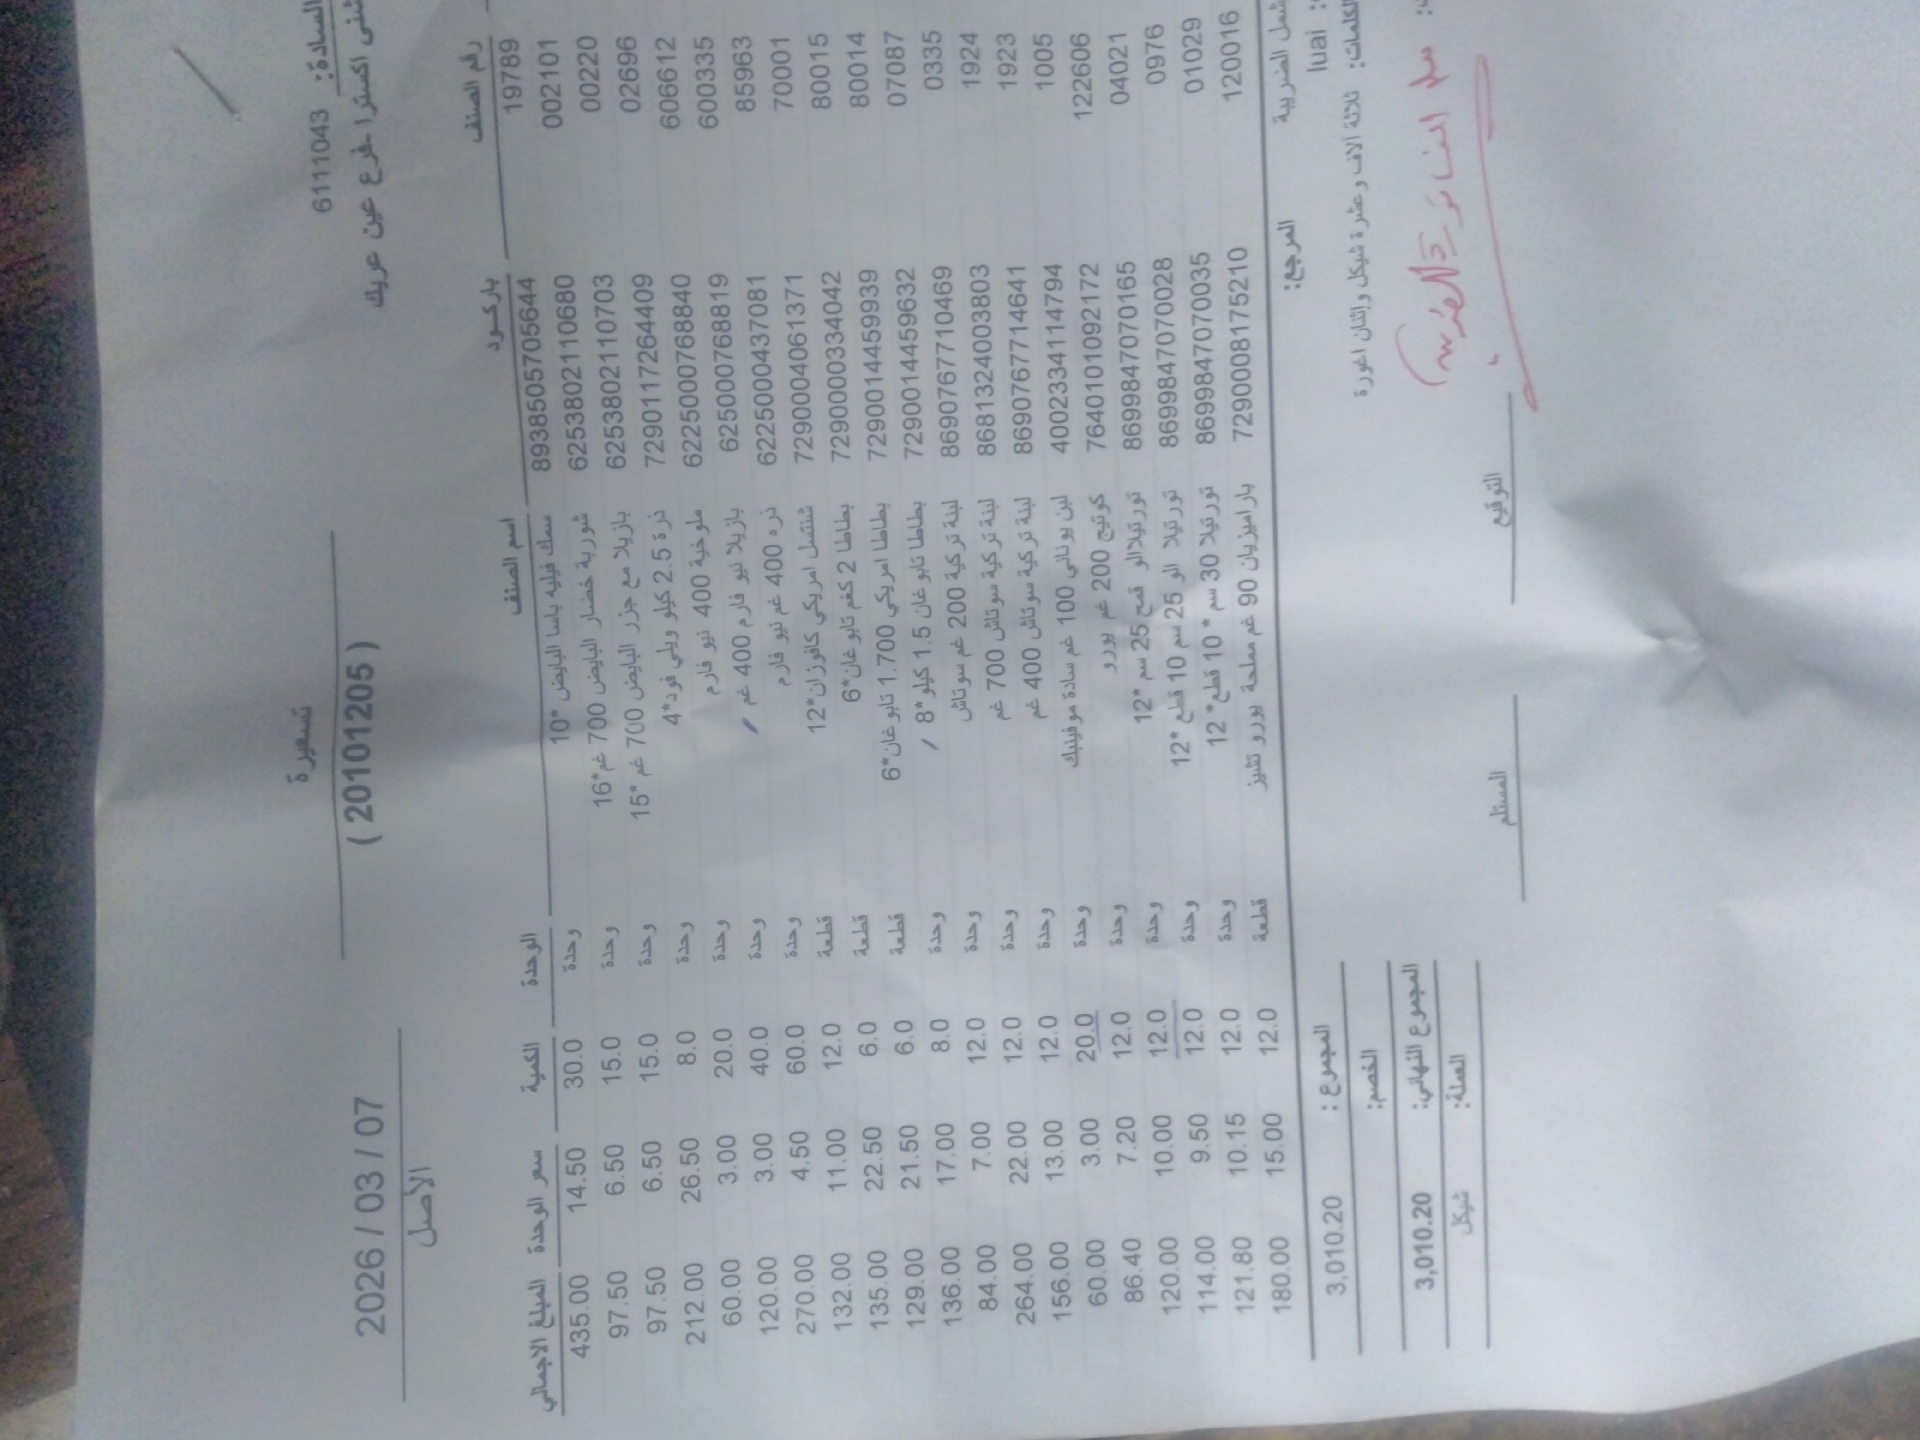 تسعيرة
( 20101205 )
2026 / 03 / 07
الأصل
السادة: 6111043
شنى اكسترا - فرع عين عريك
رقم الصنف باركود اسم الصنف الوحدة الكمية سعر الوحدة المبلغ الاجمالي
19789 8938505705644 سمك فيليه باسا البايض *10 وحدة 30.0 14.50 435.00
002101 6253802110680 شوربة خضار البايض 700 غم*16 وحدة 15.0 6.50 97.50
00220 6253802110703 بازيلا مع جزر البايض 700 غم *15 وحدة 15.0 6.50 97.50
02696 7290117264409 ذرة 2.5 كيلو ويلي فود*4 وحدة 8.0 26.50 212.00
606612 6225000768840 ملوخية 400 نيو فارم وحدة 20.0 3.00 60.00
600335 625000768819 بازيلا نيو فارم 400 غم وحدة 40.0 3.00 120.00
85963 6225000437081 ذره 400 غم نيو فارم وحدة 60.0 4.50 270.00
70001 7290004061371 شنتسل امريكي كافوزان*12 قطعة 12.0 11.00 132.00
800015 7290000334042 بطاطا 2 كغم تابو غان*6 قطعة 6.0 22.50 135.00
800014 7290014459939 بطاطا امريكي 1.700 تابو غان*6 قطعة 6.0 21.50 129.00
07087 7290014459632 بطاطا تابو غان 1.5 كيلو *8 وحدة 8.0 17.00 136.00
0335 8690767710469 لبنة تركية 200 غم سوتاش وحدة 12.0 7.00 84.00
1924 8681324003803 لبنة تركية سوتاش 700 غم وحدة 12.0 22.00 264.00
1923 8690767714641 لبنة تركية سوتاش 400 غم وحدة 12.0 13.00 156.00
1005 4002334114794 لبن يوناني 100 غم سادة موفينبك وحدة 20.0 3.00 60.00
122606 7640101092172 كوتيج 200 غم يورو وحدة 12.0 7.20 86.40
04021 8699847070165 تورتيلاالو قمح 25 سم *12 وحدة 12.0 10.00 120.00
0976 8699847070028 تورتيلا الو 25 سم 10 قطع *12 وحدة 12.0 9.50 114.00
01029 8699847070035 تورتيلا 30 سم * 10 قطع* 12 وحدة 12.0 10.15 121.80
120016 7290008175210 بارميزيان 90 غم مملحة يورو تشيز قطعة 12.0 15.00 180.00
شمل الضريبية المرجع: المجموع : 3,010.20
: luai
الكلمات: ثلاثة الاف وعشرة شيكل وإثنان اغورة
الخصم:
المجموع النهائي: 3,010.20
العملة: شيكل
التوقيع المستلم